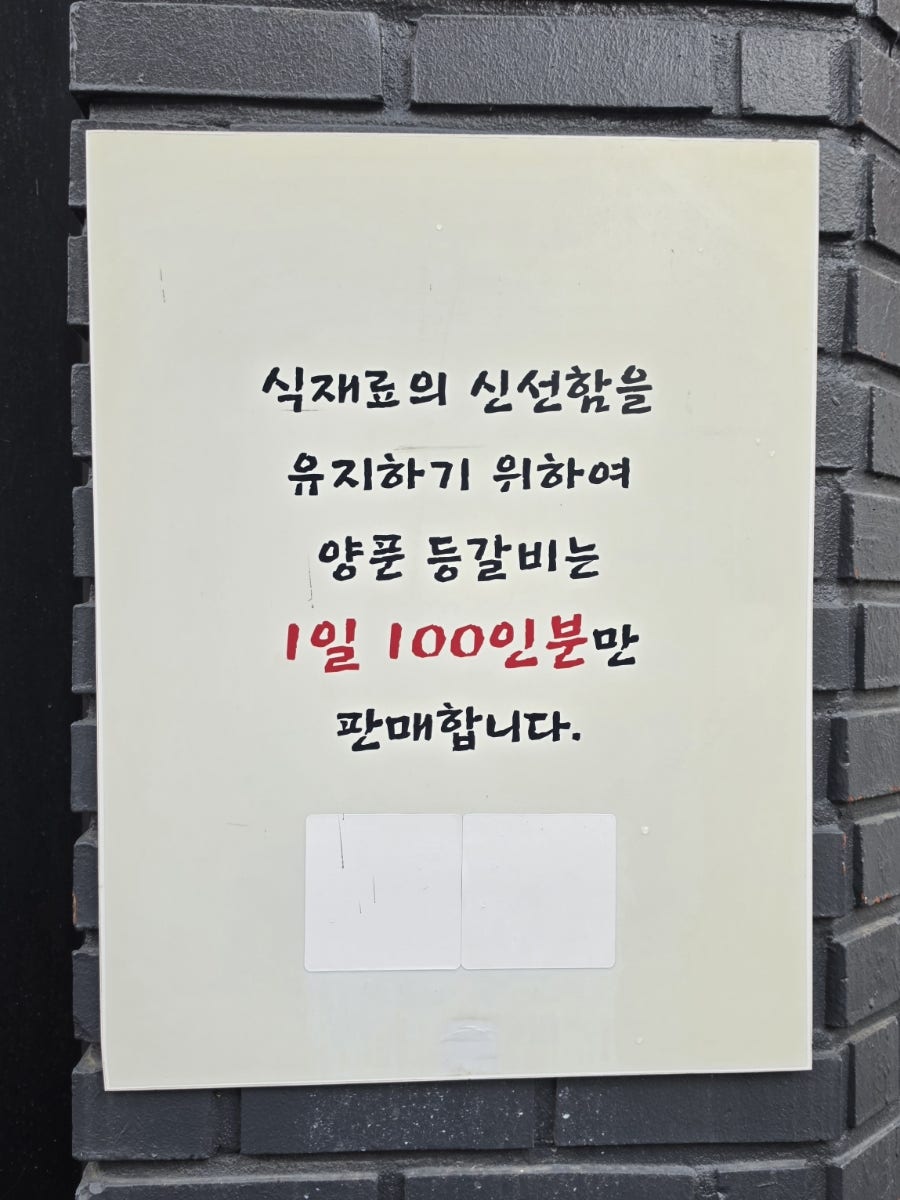 식재료의 신선함을
유지하기 위하여
양푼 등갈비는
1일 100인분만
판매합니다.